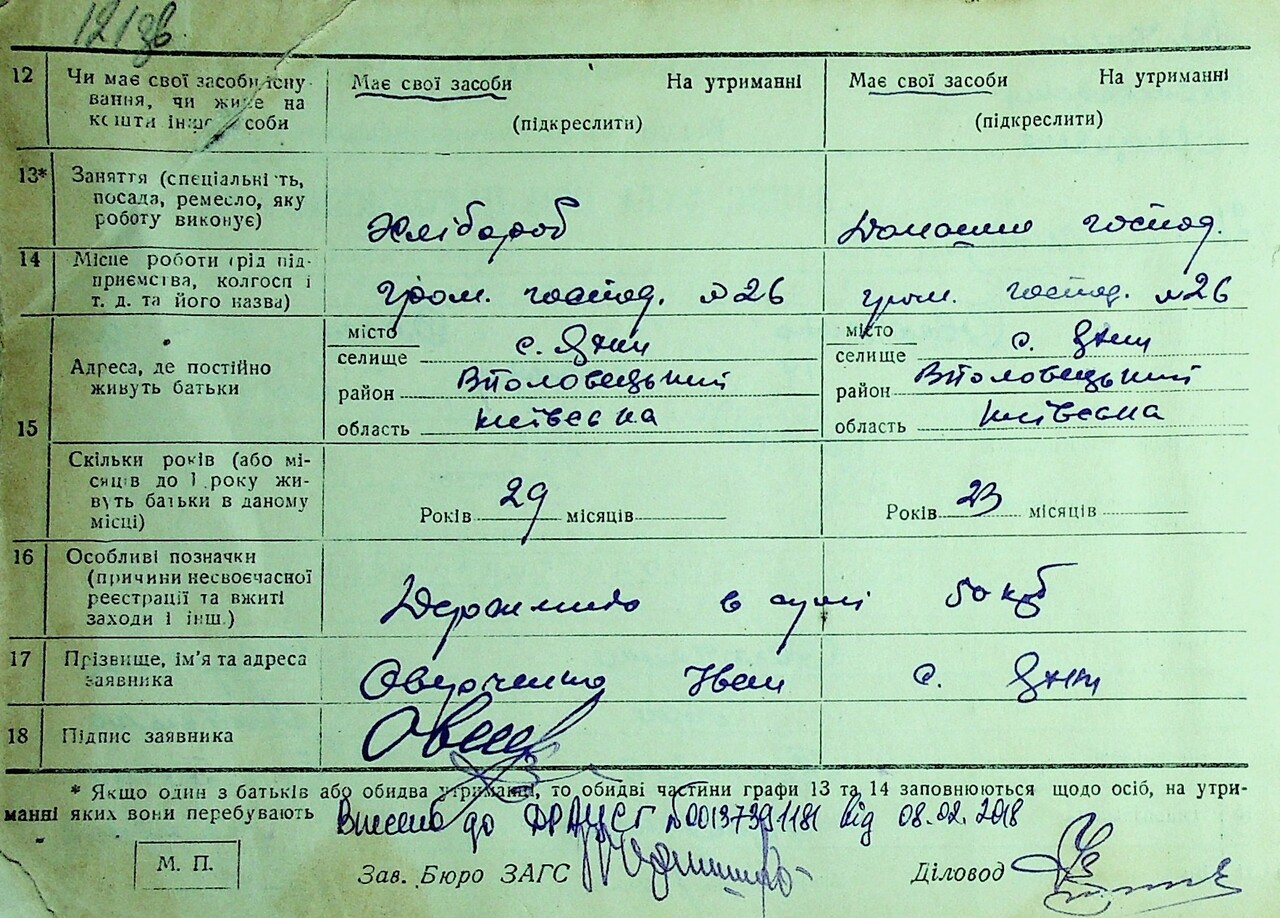 121зв
12 Чи має свої засоби існу- Має свої засоби На утриманні Має свої засоби На утриманні
вання, чи живе на
кошти іншої особи (підкреслити) (підкреслити)
13* Заняття (спеціальність,
посада, ремесло, яку
роботу виконує) Хлібороб Домашнє господ.
14 Місце роботи (рід під-
приємства, колгосп і
т. д. та його назва) гром. господ. №26 гром. господ. №26
місто місто
15 Адреса, де постійно селище с. Яхни селище с. Яхни
живуть батьки район район
область область
Скільки років (або мі-
сяців до 1 року жи-
вуть батьки в даному
місці) Років 29 місяців Років 23 місяців
16 Особливі позначки
(причини несвоєчасної
реєстрації та вжиті
заходи і інш.) в сумі 50 крб
17 Прізвище, ім'я та адреса
заявника Іван с. Яхни
18 Підпис заявника
* Якщо один з батьків або обидва утриманні, то обидві частини графи 13 та 14 заповнюються щодо осіб, на утри-
манні яких вони перебувають Внесено до ДРАЦСГ №00137391181 від 08.02.2018
М. П. Зав. Бюро ЗАГС Діловод